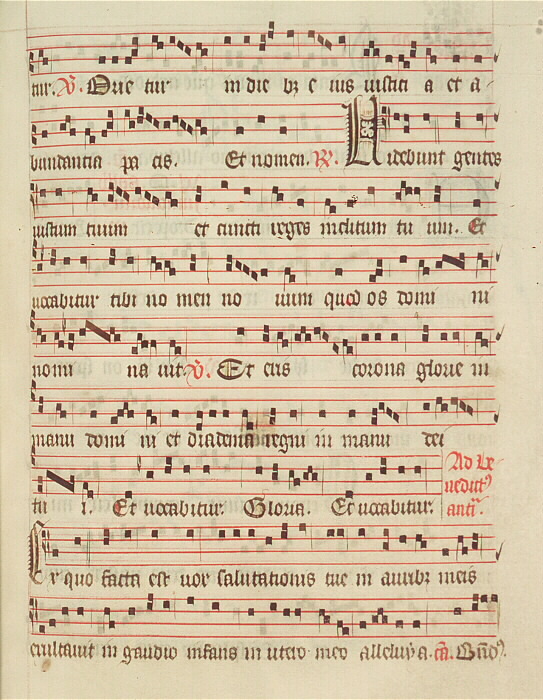 tur. V. Orie tur in die bz e ius iusticia et a
bundantia pa cis. Et nomen. R. Videbunt gentes
iustum tuum et cuncti reges inclitum tu um. Et
uocabitur tibi no men no uum quod os domi ni
nomi na uit V. Et eris corona glorie in
manu domi ni et diadema regni in manu dei
tu i. Et uocabitur. Gloria. Et uocabitur.
Ad Be
nedict9
ant.
Ex quo facta est uox salutationis tue in auribz meis
exultauit in gaudio infans in utero meo alleluya.